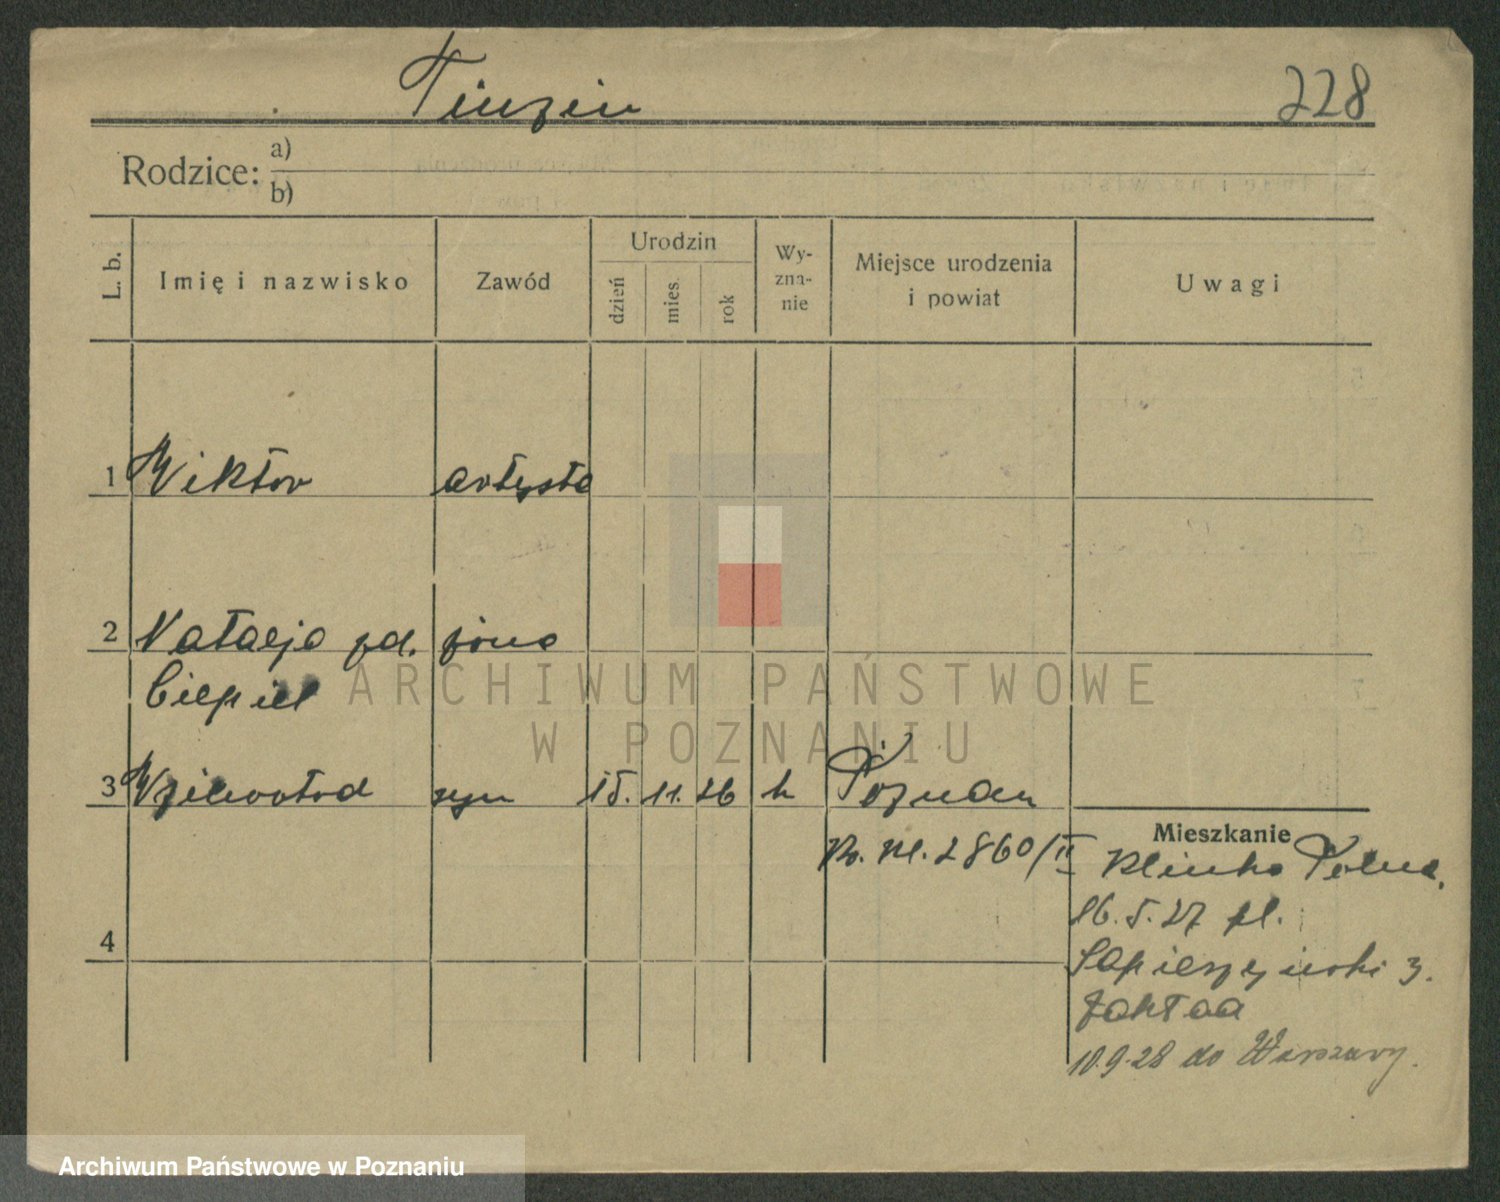 Tiuzin
228
Rodzice: a)
b)
L. b.
Imię i nazwisko
Zawód
Urodzin
dzień
mies.
rok
Wy-
zna-
nie
Miejsce urodzenia
i powiat
Uwagi
1 Wiktor artysta
2 Natalja zd. żona
Ciepiel
3 syn 15. 11. 26 k Poznań
Kr. kl. 2860/II
4
Mieszkanie
Klinka Polna.
16.5.27 pl.
Sapieżyński 3.
Zakład
10.9.28 do Warszawy.
ARCHIWUM PAŃSTWOWE
W POZNANIU
Archiwum Państwowe w Poznaniu